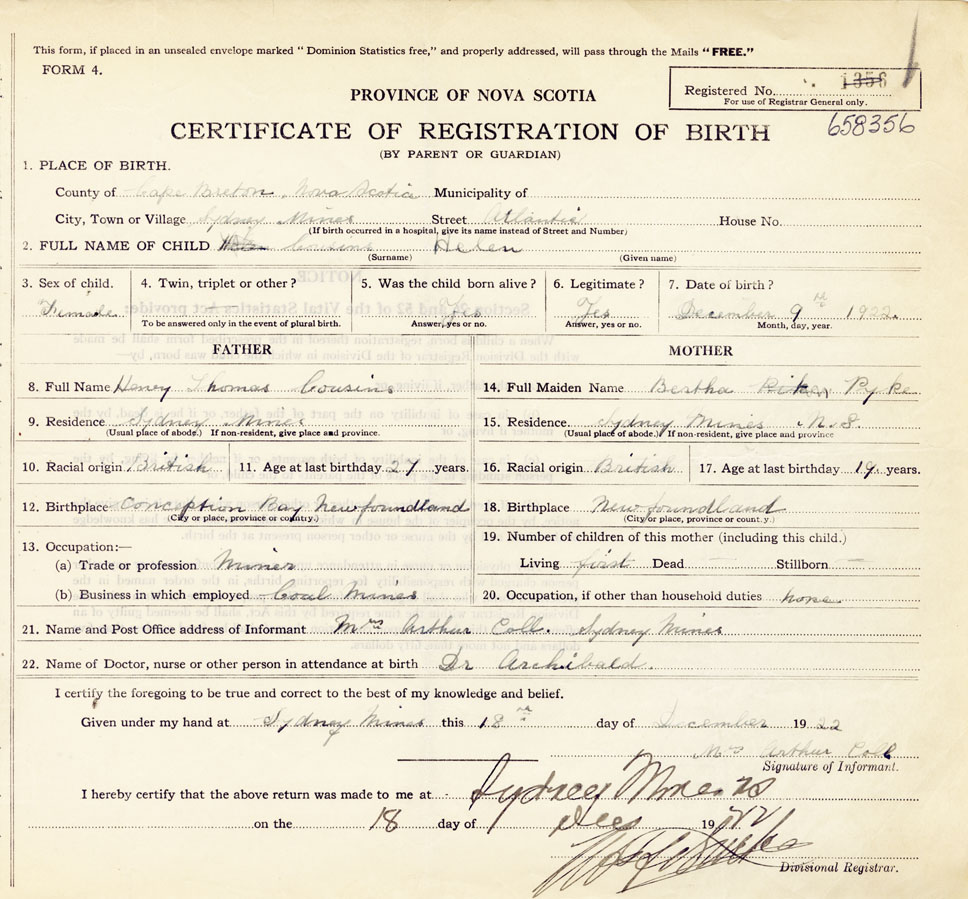 This form, if placed in an unsealed envelope marked " Dominion Statistics free," and properly addressed, will pass through the Mails "FREE."
FORM 4.
Registered No. 1356
For use of Registrar General only.
PROVINCE OF NOVA SCOTIA
658356
CERTIFICATE OF REGISTRATION OF BIRTH
(BY PARENT OR GUARDIAN)
1. PLACE OF BIRTH.
County of Cape Breton, Nova Scotia Municipality of
City, Town or Village Sydney Mines Street Atlantic House No.
(If birth occurred in a hospital, give its name instead of Street and Number)
2. FULL NAME OF CHILD Cousins Helen
(Surname) (Given name)
3. Sex of child. 4. Twin, triplet or other? 5. Was the child born alive? 6. Legitimate? 7. Date of birth?
Female Yes Yes December 9 1922
To be answered only in the event of plural birth. Answer, yes or no. Answer, yes or no. Month, day, year.
FATHER MOTHER
8. Full Name Henry Thomas Cousins 14. Full Maiden Name Bertha Pyke
9. Residence Sydney Mines 15. Residence. Sydney Mines N.S.
(Usual place of abode.) If non-resident, give place and province. (Usual place of abode.) If non-resident, give place and province
10. Racial origin British 11. Age at last birthday 27 years. 16. Racial origin British 17. Age at last birthday 19 years.
12. Birthplace Conception Bay Newfoundland 18. Birthplace Newfoundland
(City or place, province or country.) (City or place, province or count.y.)
13. Occupation:— 19. Number of children of this mother (including this child.)
(a) Trade or profession Miner Living first Dead — Stillborn —
(b) Business in which employed Coal Mines 20. Occupation, if other than household duties none
21. Name and Post Office address of Informant Mrs Arthur Coll. Sydney Mines
22. Name of Doctor, nurse or other person in attendance at birth Dr Archibald.
I certify the foregoing to be true and correct to the best of my knowledge and belief.
Given under my hand at Sydney Mines this 18 day of December 1922
Mrs Arthur Coll
Signature of Informant.
I hereby certify that the above return was made to me at Sydney Mines
on the 18 day of Dec 1922
Divisional Registrar.